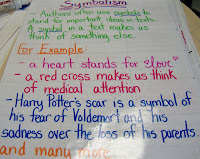 Symbolism
- Authors often use symbols to
stand for important ideas in texts.
A symbol in a text makes us
think of something else.
For Example
- a heart stands for love
- a red cross makes us think
of medical attention
- Harry Potter's scar is a symbol of
his fear of Voldemort and his
sadness over the loss of his parents
and many more